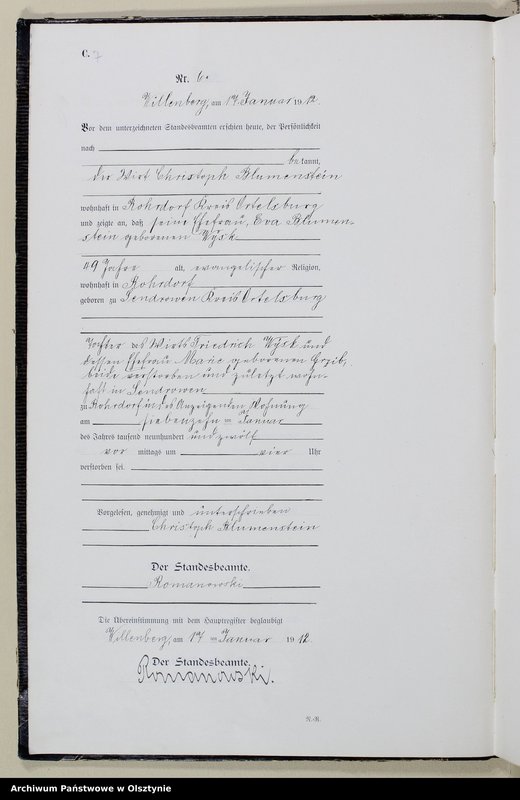 C. 7
Nr. 6.
Willenberg, am 17 Januar 1912.
Vor dem unterzeichneten Standesbeamten erschien heute, der Persönlichkeit
nach
bekannt,
der Wirt Christoph Blumenstein
wohnhaft in Rohrdorf Kreis Ortelsburg
und zeigte an, daß seine Ehefrau, Eva Blumen-
stein geborenen Wysk
49 Jahre alt, evangelischer Religion,
wohnhaft in Rohrdorf
geboren zu Sendrowen Kreis Ortelsburg
Tochter des Wirts Friedrich Wysk und
dessen Ehefrau Marie geborenen
beide verstorben und zuletzt wohn-
haft in Sendrowen
zu Rohrdorf in des Anzeigenden Wohnung
am siebenzehn ten Januar
des Jahres tausend neunhundert und zwölf
vor mittags um vier Uhr
verstorben sei.
Vorgelesen, genehmigt und unterschrieben
Christoph Blumenstein
Der Standesbeamte.
Romanowski
Die Übereinstimmung mit dem Hauptregister beglaubigt
Willenberg, am 17 ten Januar 1912
Der Standesbeamte.
Romanowski.
N.-R.
Archiwum Państwowe w Olsztynie